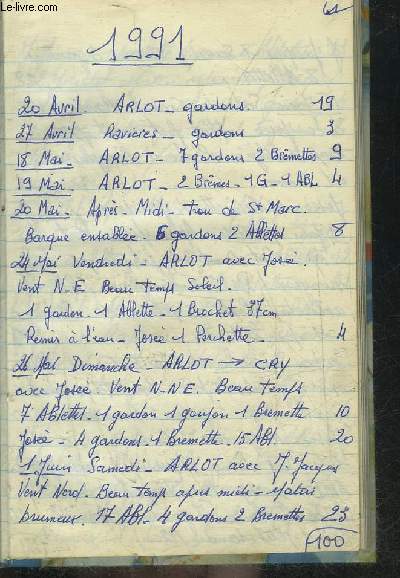 Le-livre.com
61
1991
20 Avril. ARLOT - gardons. 19
27 Avril Ravieres - gardons 3
18 Mai - ARLOT - 7 gardons 2 Brêmettes 9
19 Mai - ARLOT - 2 Brêmes - 1G - 1 ABL 4
20 Mai - Après-Midi - trou de St Marc.
Barque ensablée. 6 gardons 2 Ablettes 8
24 Mai Vendredi - ARLOT avec José.
Vent N.E Beau temps Soleil.
1 gardon. 1 Ablette - 1 Brochet 37cm
Remis à l'eau - José 1 Perchette - 4
26 Mai Dimanche - ARLOT → CRY
avec José. Vent N-NE. Beau temps
7 Ablettes. 1 gardon 1 goujon 1 Bremette 10
José - 4 gardons. 1 Bremette. 15 Abl. 20
1 Juin Samedi - ARLOT avec J. Jacques
Vent Nord - Beau temps après midi - Matin
brumeux. 17 Abl - 4 gardons 2 Bremettes 23
100